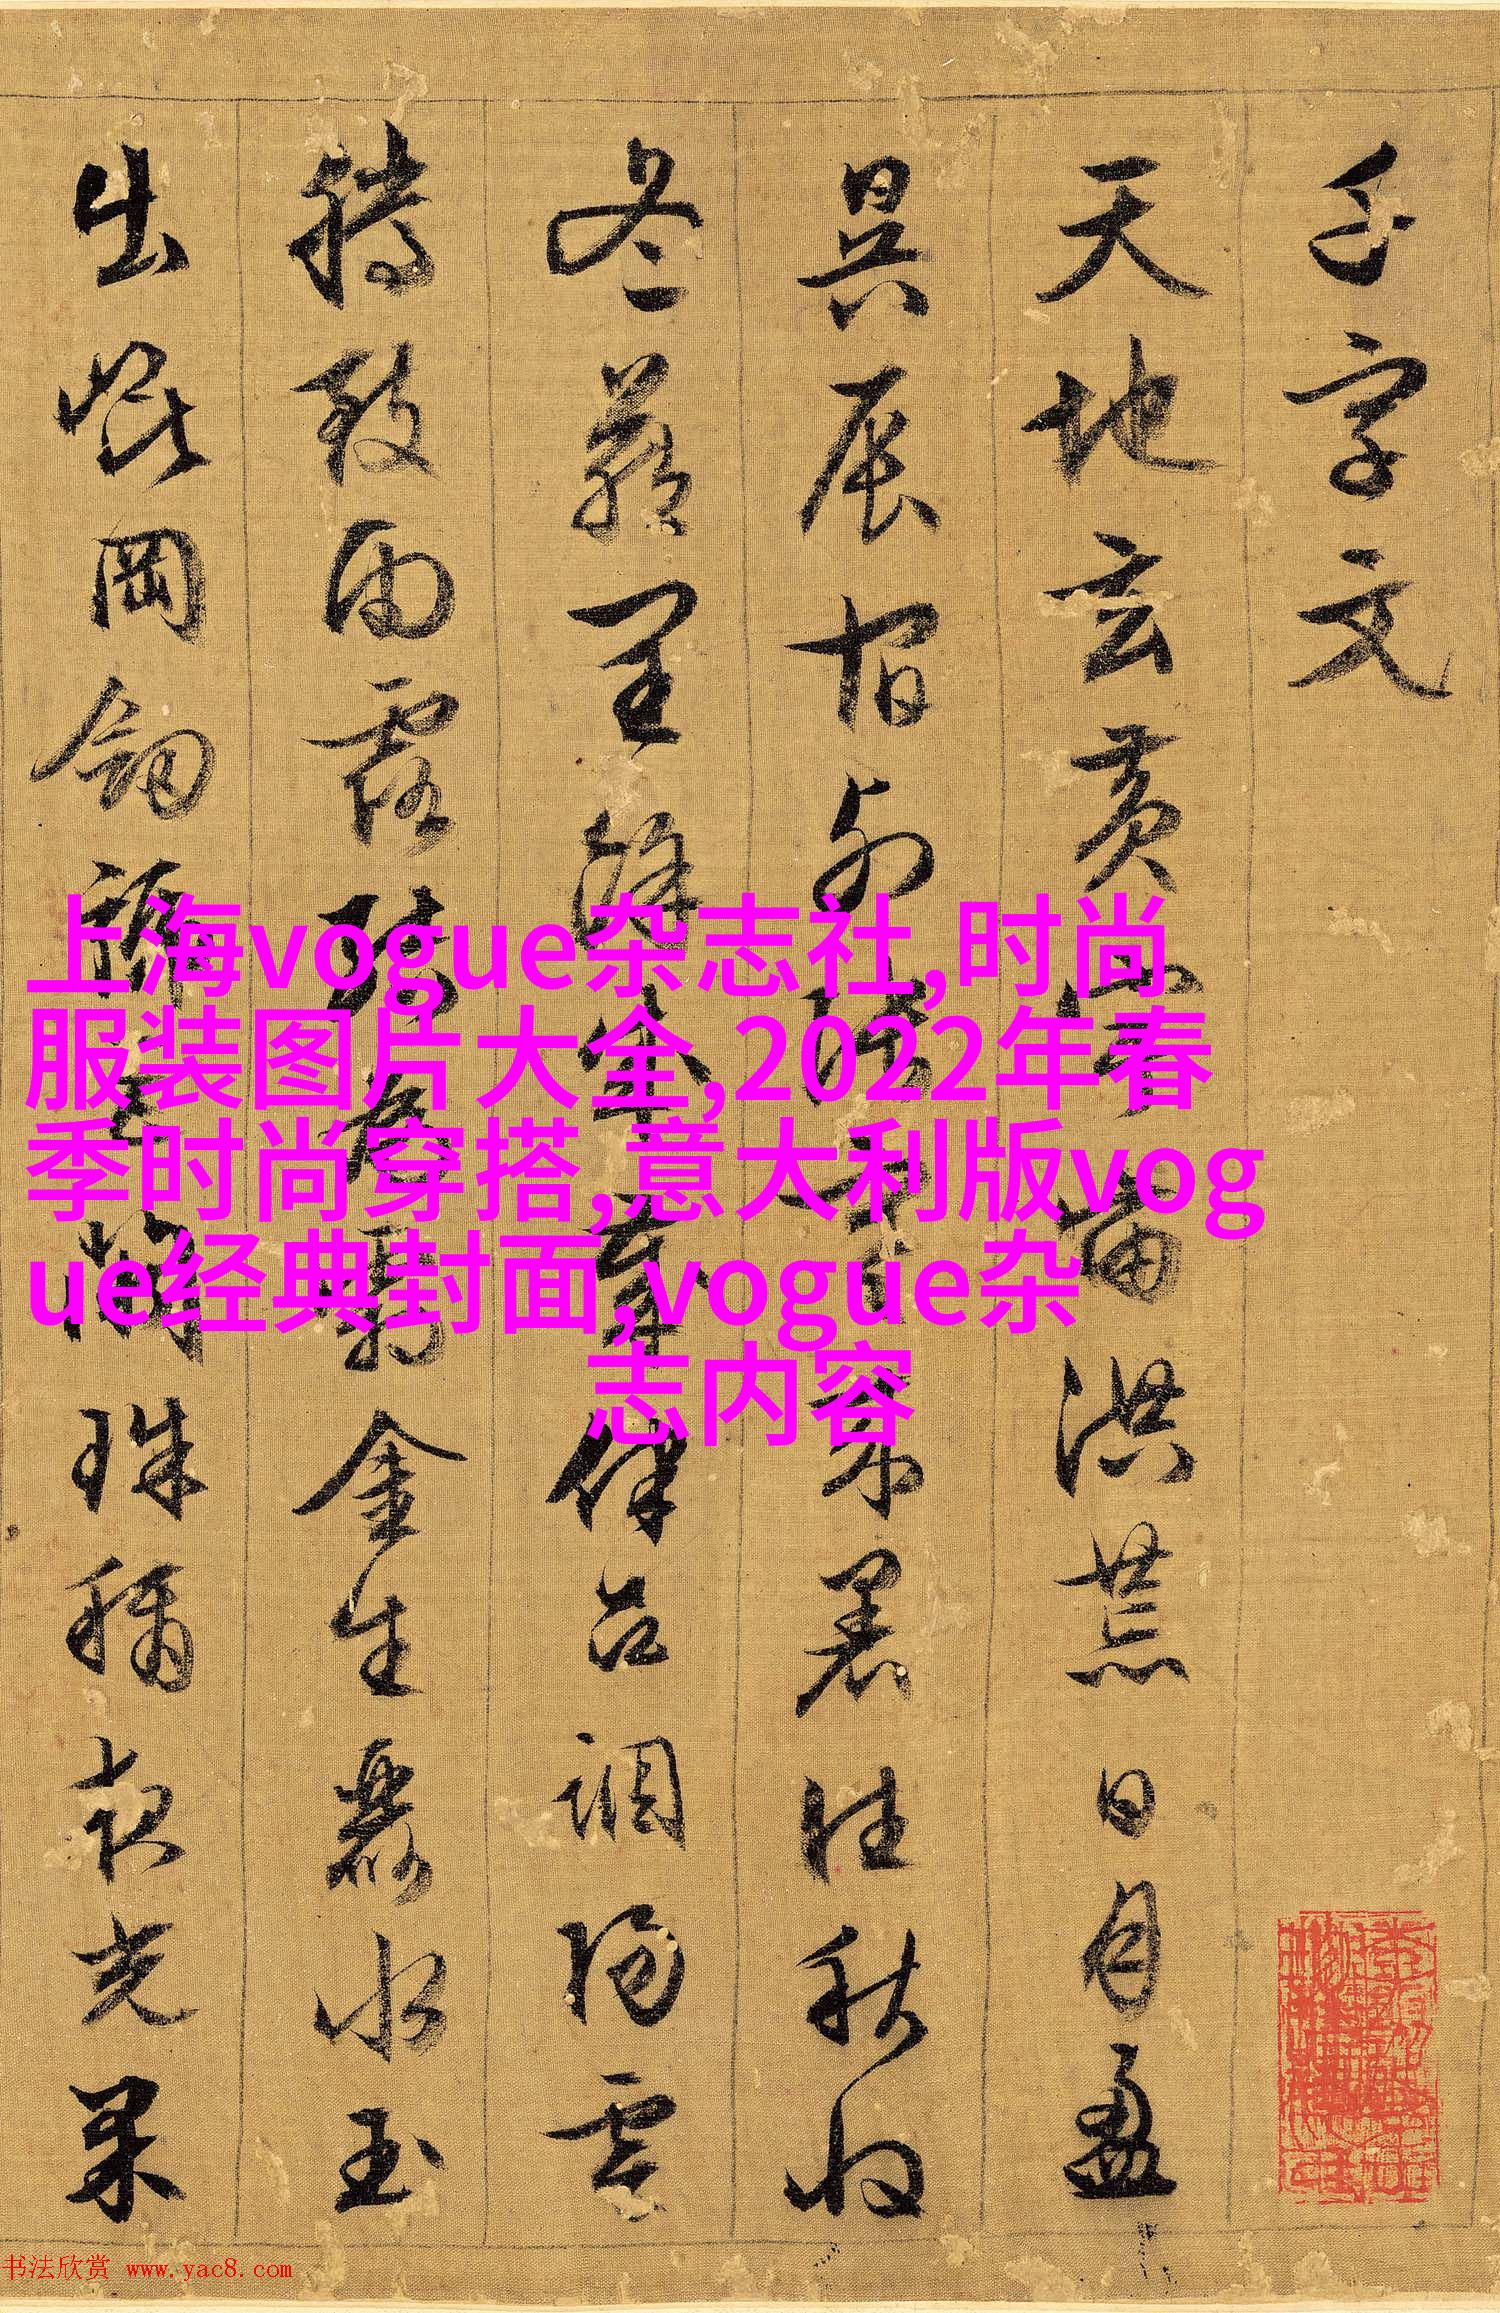 千字文
天地玄黄宇宙洪荒日月盈
昃辰宿列張寒来暑往秋收
冬藏閏餘成歲律吕調陽雲
騰致雨露結為霜金生麗水玉
出崑岡劍號巨闕珠稱夜光果
上海vogue杂志社,时尚
服装图片大全,2022年春
季时尚穿搭,意大利版vog
ue经典封面,vogue杂
志内容
书法欣赏 www.yac8.com